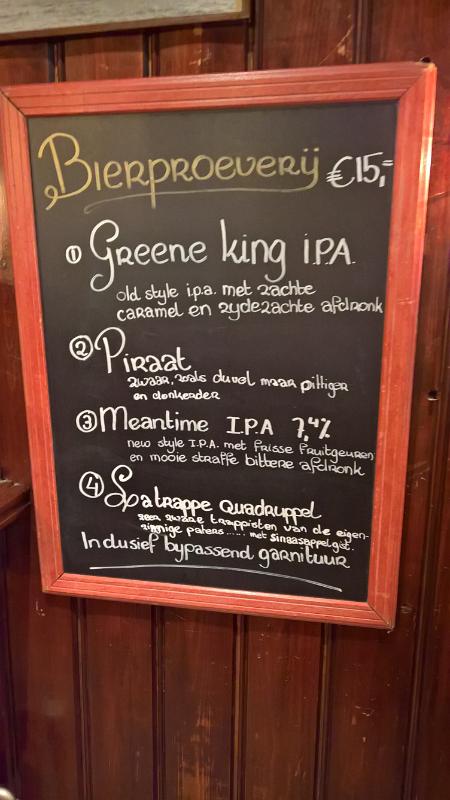 Bierproeverij €15,=
① Greene king I.P.A.
old style i.p.a. met zachte
caramel en zydezachte afdronk
② Piraat
zwaar, zoals duvel maar pittiger
en donkerder
③ Meantime I.P.A 7,4%
new style I.P.A. met frisse fruitgeuren
en mooie straffe bittere afdronk
④ La trappe Quadruppel
zeer zware trappisten van de eigen-
zinnige paters..... met sinaasappelgist.
Inclusief bypassend garnituur